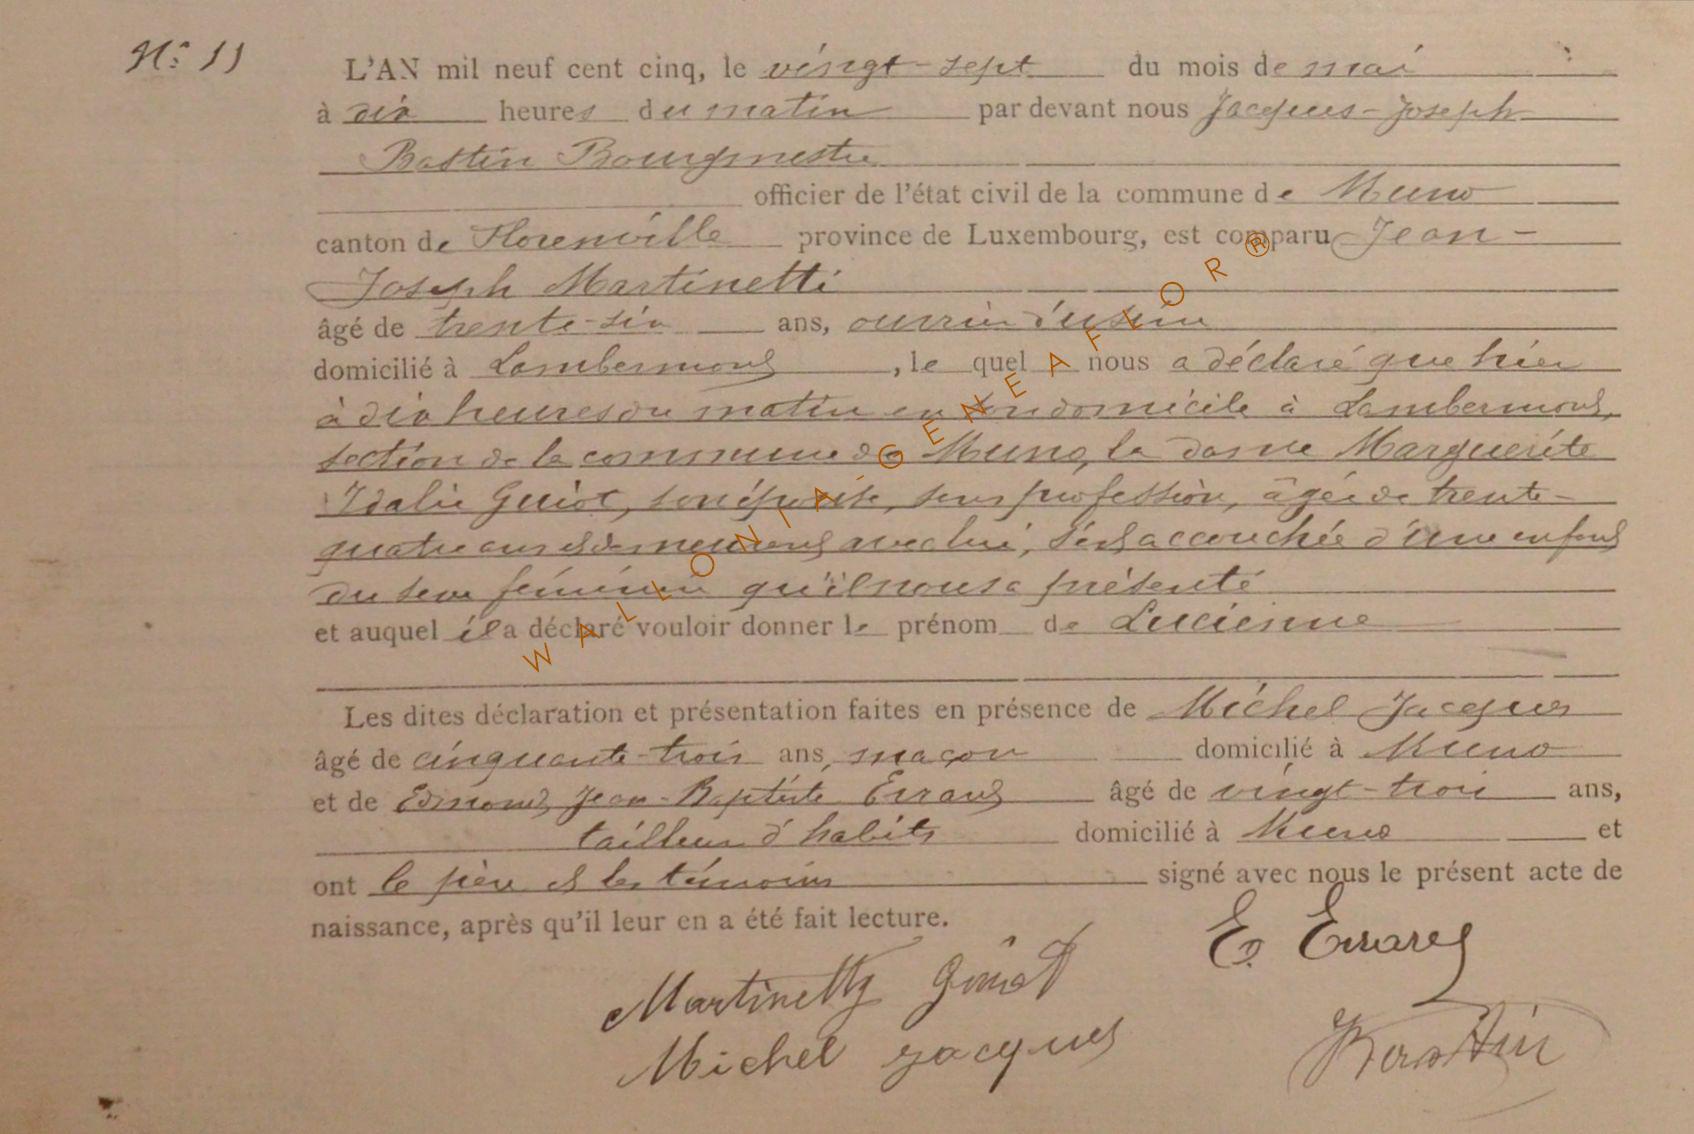 No: 11
L'AN mil neuf cent cinq, le vingt-sept du mois de mai
à dix heures du matin par devant nous Jacques-Joseph
Bastin Bourgmestre
officier de l'état civil de la commune de Muno
canton de Florenville province de Luxembourg, est comparu Jean-
Joseph Martinetti
âgé de trente-six ans, ouvrier d'usine
domicilié à Lambermont, le quel nous a déclaré que hier
à dix heures du matin en son domicile à Lambermont,
section de la commune de Muno, la dame Marguerite
Idalie Guiot, son épouse, sans profession, âgée de trente-
quatre ans et demeurant avec lui, s'est accouchée d'une enfant
du sexe féminin qu'il nous a présenté
et auquel il a déclaré vouloir donner le prénom de Lucienne
Les dites déclaration et présentation faites en présence de Michel Jacques
âgé de cinquante-trois ans, maçon domicilié à Muno
et de Edmond Jean-Baptiste Errard âgé de vingt-trois ans,
tailleur d'habits domicilié à Muno et
ont le père et les témoins signé avec nous le présent acte de
naissance, après qu'il leur en a été fait lecture.
E. Errard
Martinetty Guiot
Michel Jacques
Bastin
WALLONIA GENEAFLOR®